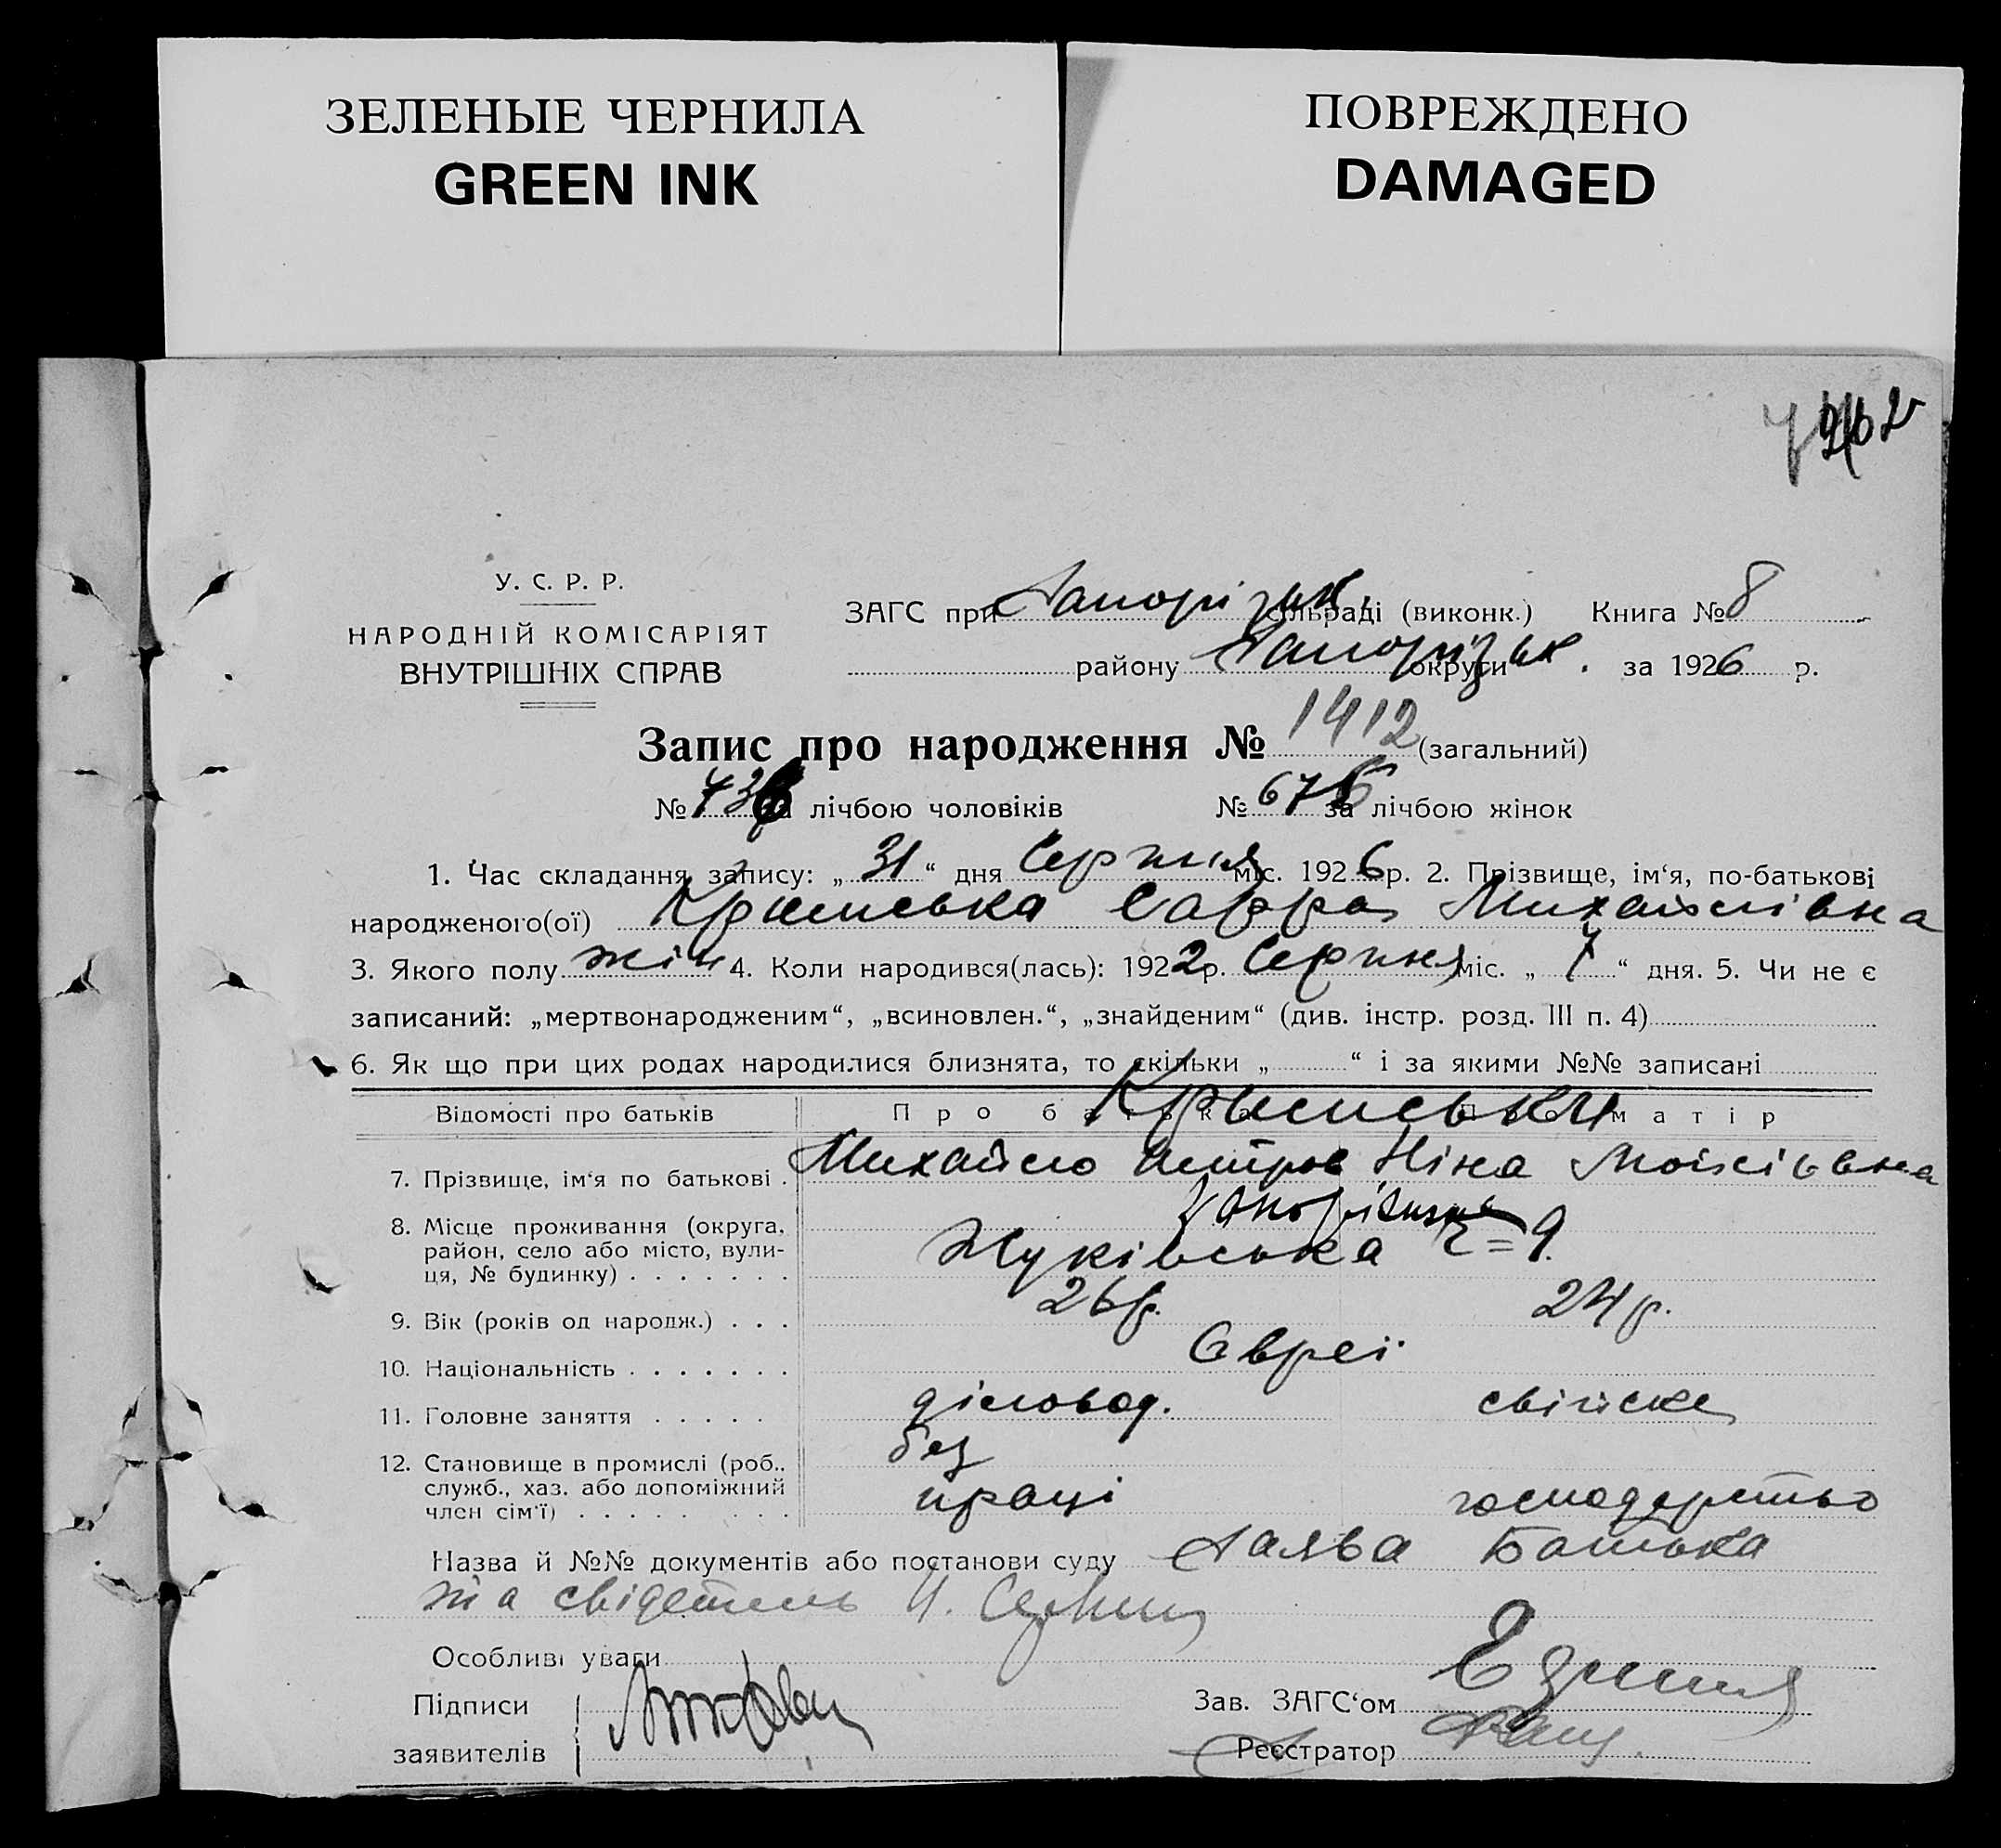 ЗЕЛЕНЫЕ ЧЕРНИЛА
GREEN INK
ПОВРЕЖДЕНО
DAMAGED
У. С. Р. Р.
НАРОДНІЙ КОМІСАРІЯТ
ВНУТРІШНІХ СПРАВ
ЗАГС при Запорізьк. сільраді (виконк.) Книга № 8
району Запорізьк. округи за 1926 р.
Запис про народження № 1412 (загальний)
№ 736 за лічбою чоловіків № 676 за лічбою жінок
1. Час складання запису: „31“ дня Серпня міс. 1926 р. 2. Прізвище, ім‘я, по-батькові
народженого(ої) Кримська Сарра Михайлівна
3. Якого полу жін 4. Коли народився(лась): 1922 р. Серпня міс. „7“ дня. 5. Чи не є
записаний: „мертвонародженим“, „всиновлен.“, „знайденим“ (див. інстр. розд. III п. 4)
6. Як що при цих родах народилися близнята, то скільки „ “ і за якими №№ записані
Відомості про батьків Про батька Про матір
Кримськи
7. Прізвище, ім‘я по батькові . Михайло Ніна Мойсіївна
8. Місце проживання (округа, район, село або місто, вулиця, № будинку) . . . . . . .
Жуківська 9.
9. Вік (років од народж.) . . . 26 р. 24 р.
10. Національність . . . . . . . Євреї
11. Головне заняття . . . . . діловод. свійске
12. Становище в промислі (роб., служб., хаз. або допоміжний член сім‘ї) . . . . . . . . . без
праці господарство
Назва й №№ документів або постанови суду Заява Батька
та свідетель
Особливі уваги
Підписи
заявителів
Зав. ЗАГС‘ом
Реєстратор